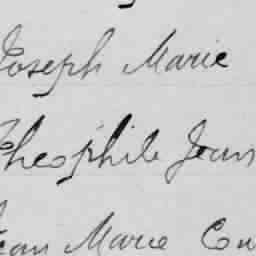 Joseph Marie
Théophile Jean
Jean Marie